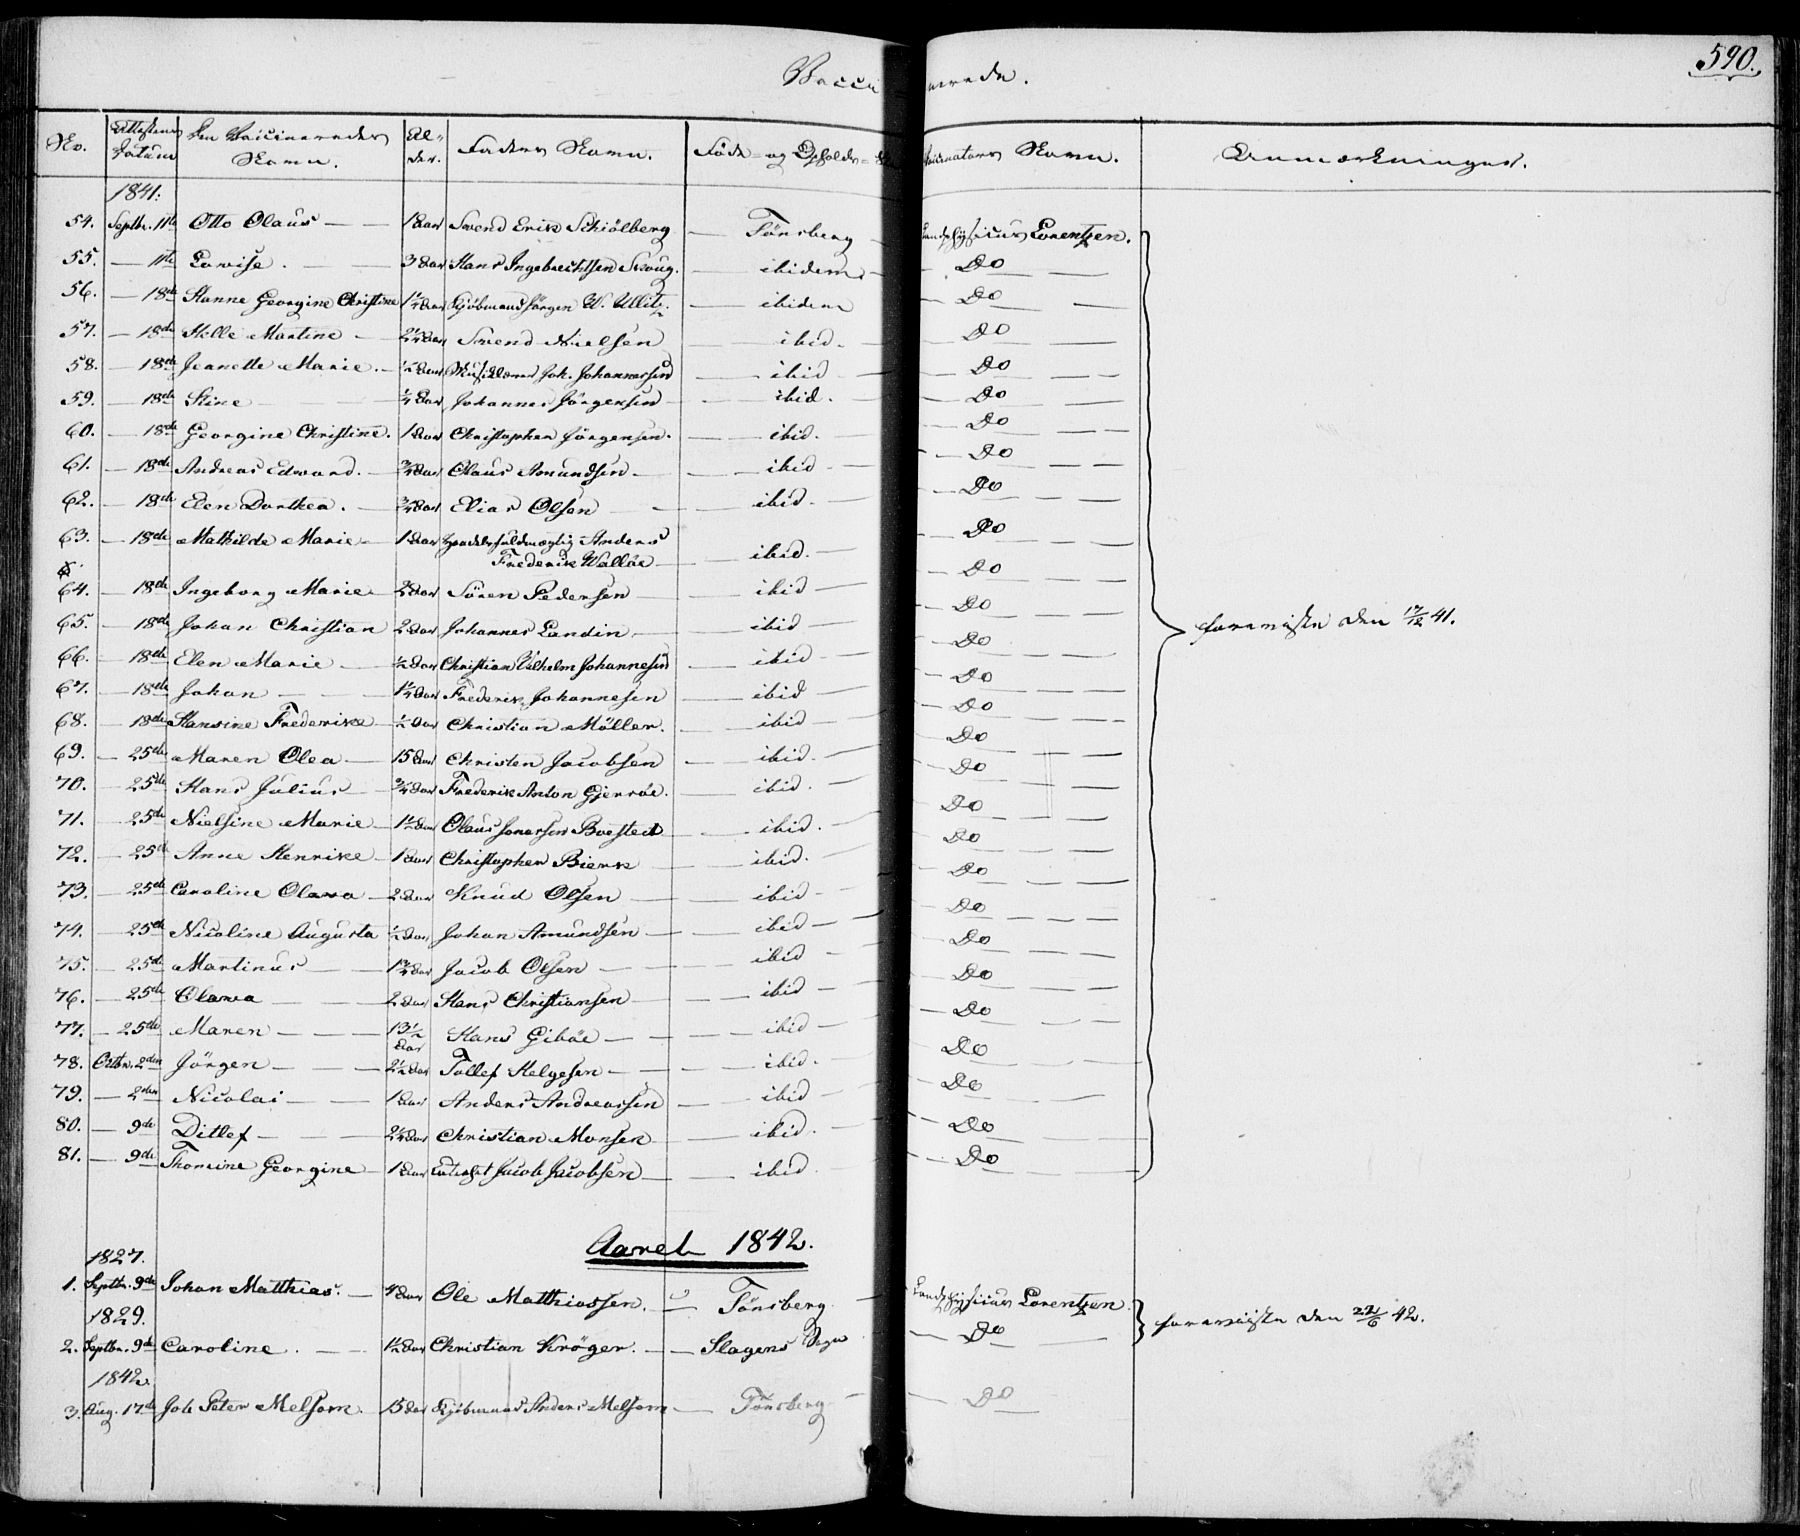 590.
Vaccinerede.
No. Attestens Datum Den Vaccineredes Navn. Alder. Faders Navn. Føde- og Opholds- Vaccinators Navn. Anmærkninger.
1841.
54. Septbr. 11te Otto Olaus — 1 Aar Svend Erik Schiölberg — Tönsberg — Landphysicus Lorentzen.
55. — 11te Lovise. — 3 Aar Hans Ingebrechtsen Skoug. — ibidem — Do
56. — 18de Hanne Georgine Christine 1¼ Aar Kjöbmand Jörgen W. Ullitz. — ibidem — Do
57. — 18de Helle Martine — 2¼ Aar Svend Nielsen — ibid. — Do
58. — 18de Jeanette Marie. — ½ Aar Musiklærer Joh. Johannessen — ibid — Do
59. — 18de Stine — ¼ Aar Johannes Jörgensen — ibid. — Do
60. — 18de Georgine Christine. 1 Aar Christopher Jörgensen. — ibid. — Do
61. — 18de Andreas Edvard. — ¾ Aar Olaus Amundsen — ibid — Do
62. — 18de Elen Dorthea. — ¾ Aar Elias Olsen — ibid. — Do
63. — 18de Mathilde Marie — 1 Aar Handelsfuldmægtig Anders
Frederik Walløe — ibid. — Do
64. — 18de Ingeborg Marie — 2 Aar Sören Pedersen — ibid — Do
65. — 18de Johan Christian 2 Aar Johannes Landin. — ibid — Do
foreviste den 17/12 41.
66. — 18de Elen Marie — ½ Aar Christian Wilhelm Johannesen — ibid — Do
67. — 18de Johan — 1¼ Aar Frederik Johannesen — ibid — Do
68. — 18de Hansine Frederike — ½ Aar Christian Möller. — ibid — Do
69. — 25de Maren Olea — 15 Aar Christen Jacobsen — ibid. — Do
70. — 25de Hans Julius — ¾ Aar Frederik Anton Gjerröe. — ibid. — Do
71. — 25de Nielsine Marie — 1½ Aar Olaus Boested — ibid. — Do
72. — 25de Anne Henrike — 1 Aar Christopher Bierk — ibid. — Do
73. — 25de Caroline Olava — 2 Aar Knud Olsen — ibid — Do
74. — 25de Nicoline Augusta ½ Aar Johan Amundsen — ibid — Do
75. — 25de Martinus — 1¾ Aar Jacob Olsen — ibid — Do
76. — 25de Olava — 2 Aar Hans Christiansen — ibid — Do
77. — 25de Maren — 13½ Aar Hans Giböe — ibid — Do
78. Octbr. 2den Jörgen — 2½ Aar Tollef Helgesen — ibid. — Do
79. — 2den Nicolai — 1 Aar Anders Andreassen — ibid — Do
80. — 9de Ditlef — 2¼ Aar Christian Monsen — ibid. — Do
81. — 9de Thomine Georgine — 1 Aar Jacob Jacobsen — ibid — Do
Aaret 1842.
1827.
1. Septbr. 9de Johan Matthias. — 4 Aar Ole Matthiassen. — Tönsberg — Landphysicus Lorentzen.
1829.
forevist den 22/6 42.
2. Septbr. 9de Caroline. — 1½ Aar Christian Kröger. — Slagens Sogn — Do
1842.
3. Aug. 17de Joh Peter Melsom. 15 Aar Kjöbmand Anders Melsom — Tönsberg — Do